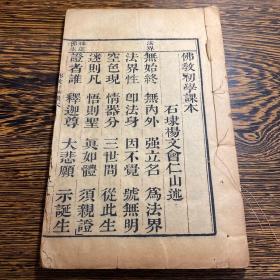 佛教初學課本
石埭楊文會仁山述
法界
無始終 無內外 強立名 爲法界
法界性 即法身 因不覺 號無明
空色現 情器分 三世間 從此生
迷則凡 悟則聖 眞如體 須親證
證者誰 釋迦尊 大悲願 示誕生